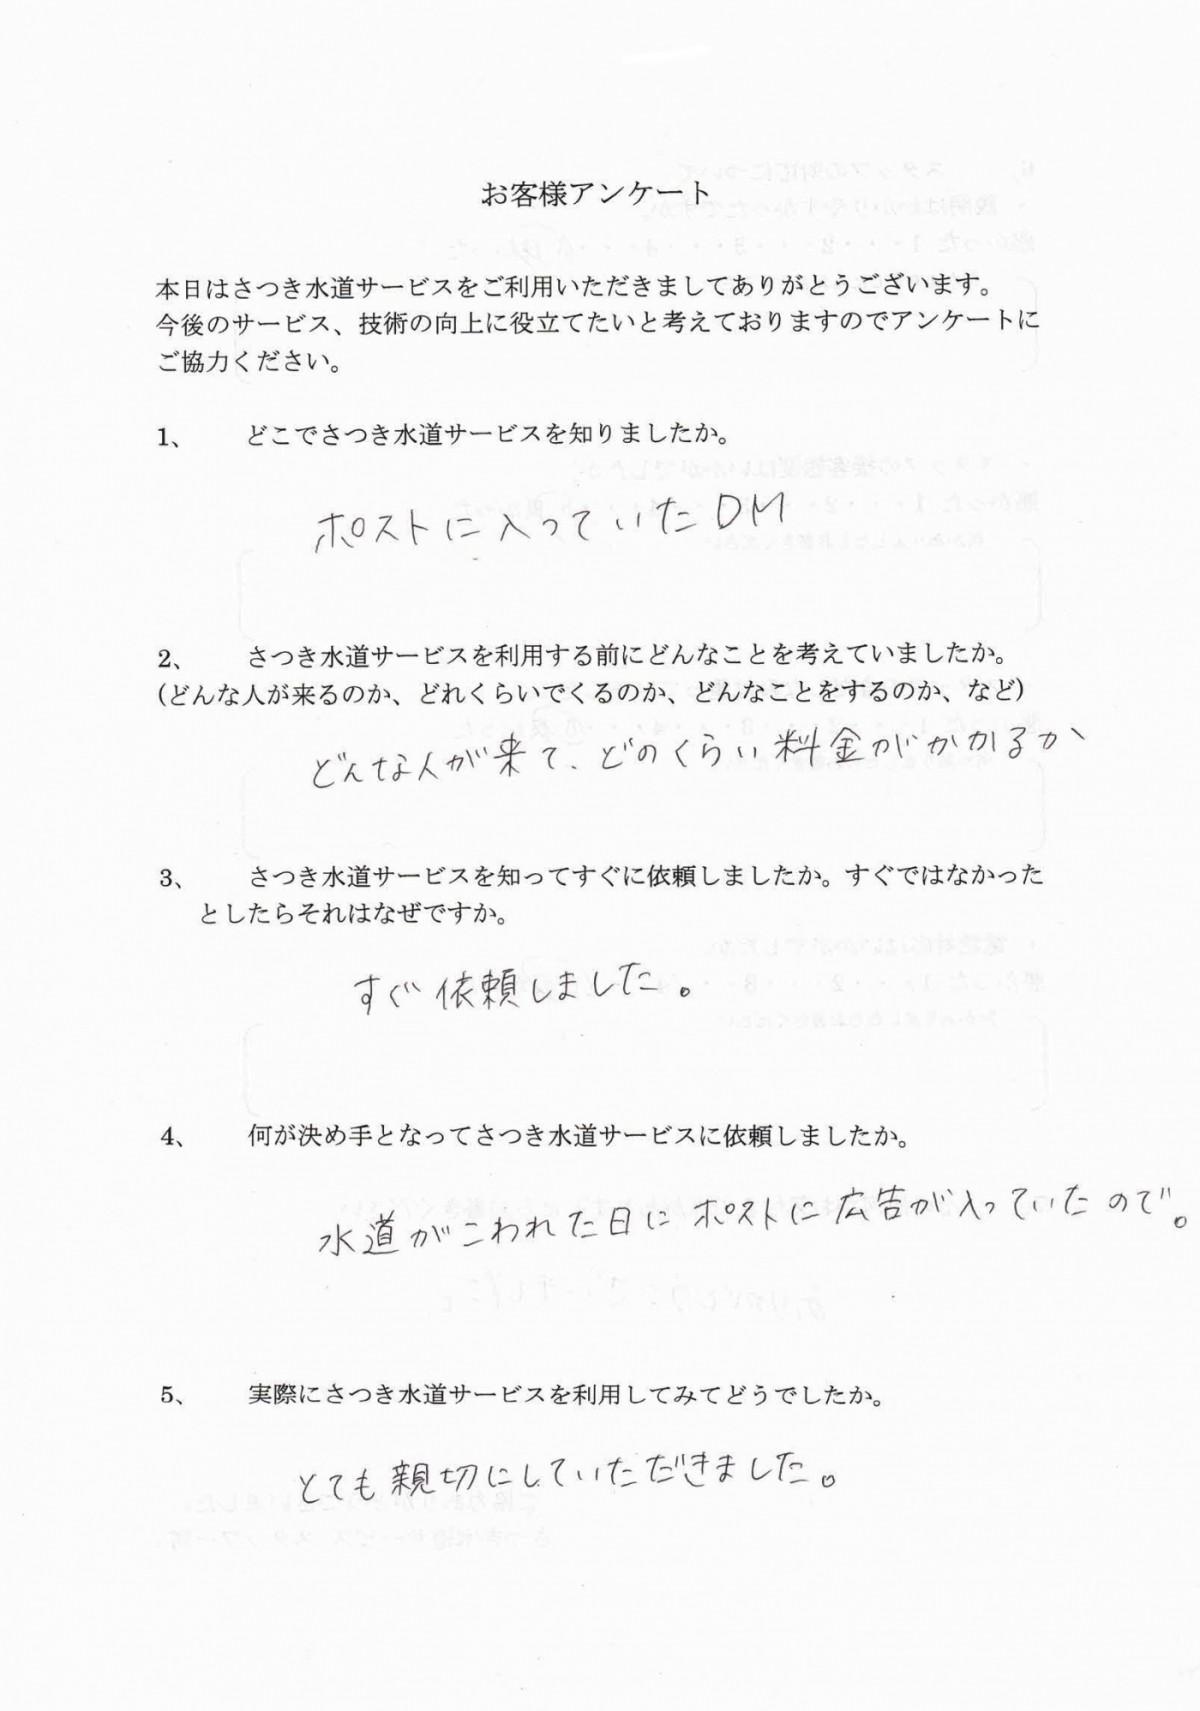 お客様アンケート
本日はさつき水道サービスをご利用いただきましてありがとうございます。
今後のサービス、技術の向上に役立てたいと考えておりますのでアンケートに
ご協力ください。
1、 どこでさつき水道サービスを知りましたか。
ポストに入っていたDM
2、 さつき水道サービスを利用する前にどんなことを考えていましたか。
(どんな人が来るのか、どれくらいでくるのか、どんなことをするのか、など)
どんな人が来て、どのくらい料金がかかるか
3、 さつき水道サービスを知ってすぐに依頼しましたか。すぐではなかった
としたらそれはなぜですか。
すぐ依頼しました。
4、 何が決め手となってさつき水道サービスに依頼しましたか。
水道がこわれた日にポストに広告が入っていたので。
5、 実際にさつき水道サービスを利用してみてどうでしたか。
とても親切にしていただきました。